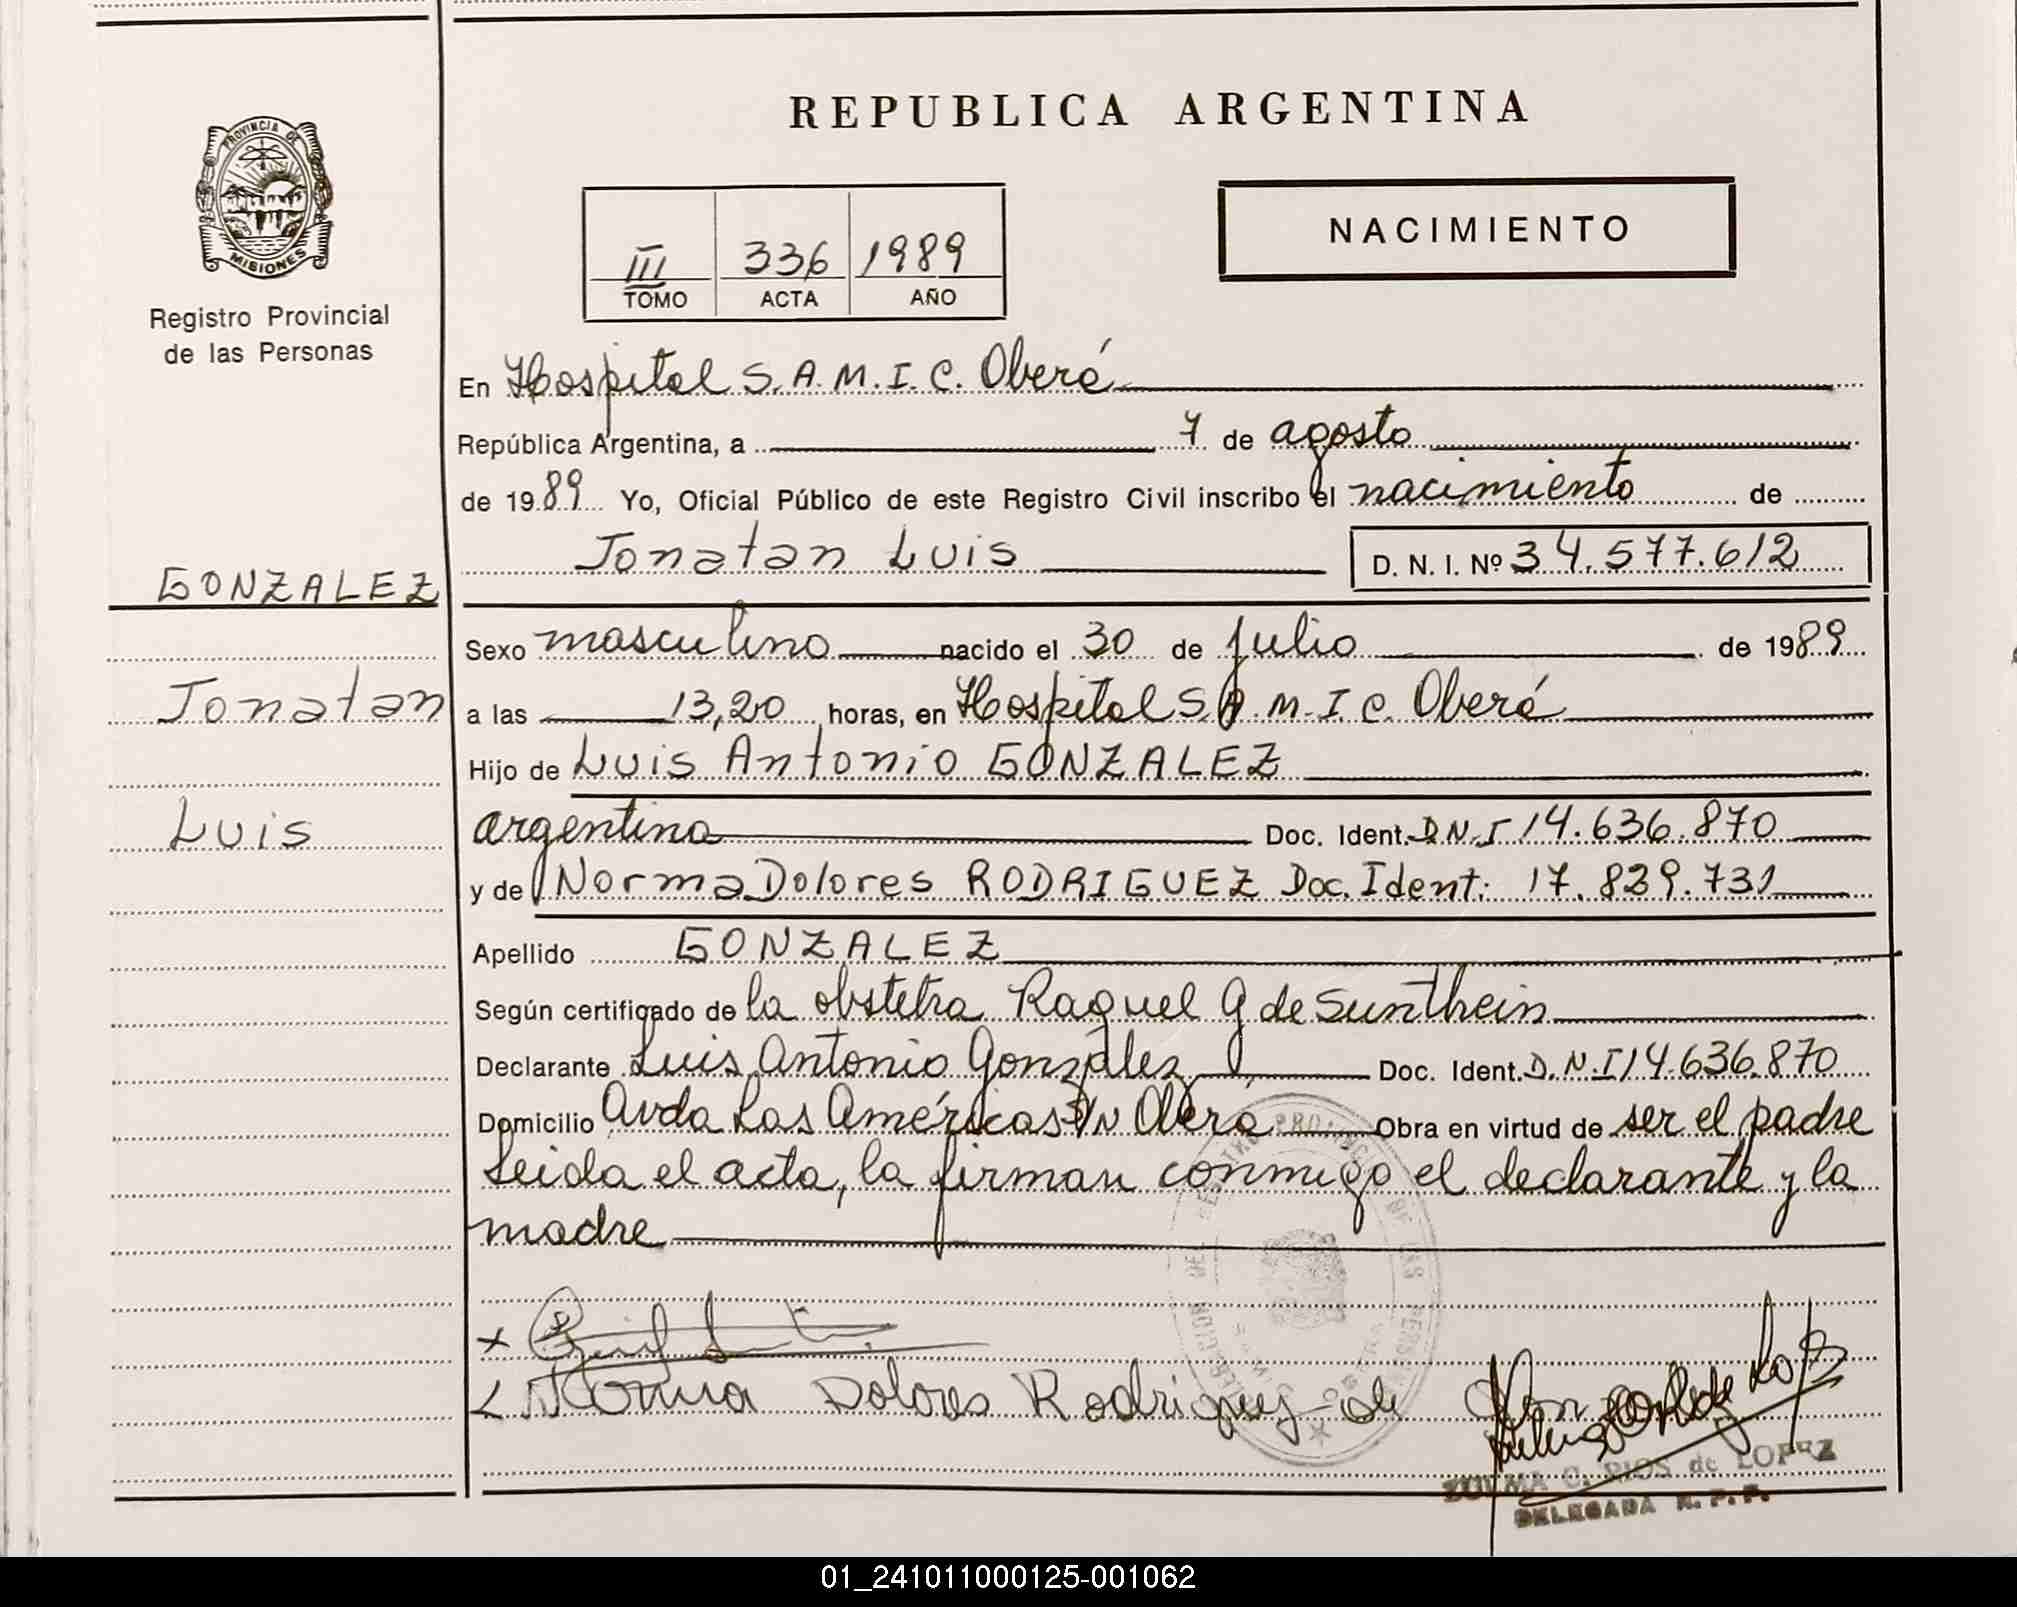 REPUBLICA ARGENTINA
PROVINCIA DE
MISIONES
Registro Provincial
de las Personas
NACIMIENTO
III 336 1989
TOMO ACTA AÑO
En Hospital S.A.M.I.C. Oberá
República Argentina, a 7 de agosto
de 1989 Yo, Oficial Público de este Registro Civil inscribo el nacimiento de
Jonatan Luis D. N. I. Nº 34.577.612
GONZALEZ
Jonatan
Luis
Sexo masculino nacido el 30 de julio de 1989
a las 13,20 horas, en Hospital S.A.M.I.C. Oberá
Hijo de Luis Antonio GONZALEZ
argentino Doc. Ident. D.N.I 14.636.870
y de Norma Dolores RODRIGUEZ Doc. Ident: 17.829.731
Apellido GONZALEZ
Según certificado de la obstetra Raquel G de Sunthein
Declarante Luis Antonio González Doc. Ident. D.N.I 14.636.870
Domicilio Avda Las Américas S/N Obera Obra en virtud de ser el padre
Leida el acta, la firman conmigo el declarante y la
madre
Norma Dolores Rodriguez de
ZULMA C. RIOS de LOPEZ
DELEGADA R. P. P.
01_241011000125-001062